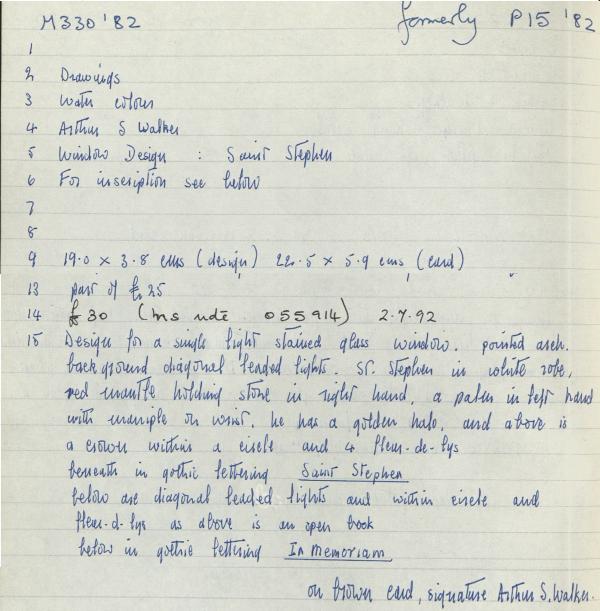 M330 '82 formerly P15 '82
1
2 Drawings
3 Water colour
4 Arthur S Walker
5 Window Design : Saint Stephen
6 For inscription see below
7
8
9 19.0 x 3.8 cms (design) 22.5 x 5.9 cms (card)
13 part of £25
14 £30 (ms note 055914) 2.7.92
15 Design for a single light stained glass window. pointed arch.
background diagonal leaded lights. St. Stephen in white robe,
red mantle holding stone in right hand, a palm in left hand
with maniple on wrist. he has a golden halo, and above is
a crown within a circle and 4 fleur-de-lys
beneath in gothic lettering Saint Stephen
below are diagonal leaded lights and within circle and
fleur-d-lys as above is an open book
below in gothic lettering In Memoriam
on brown card, signature Arthur S. Walker.